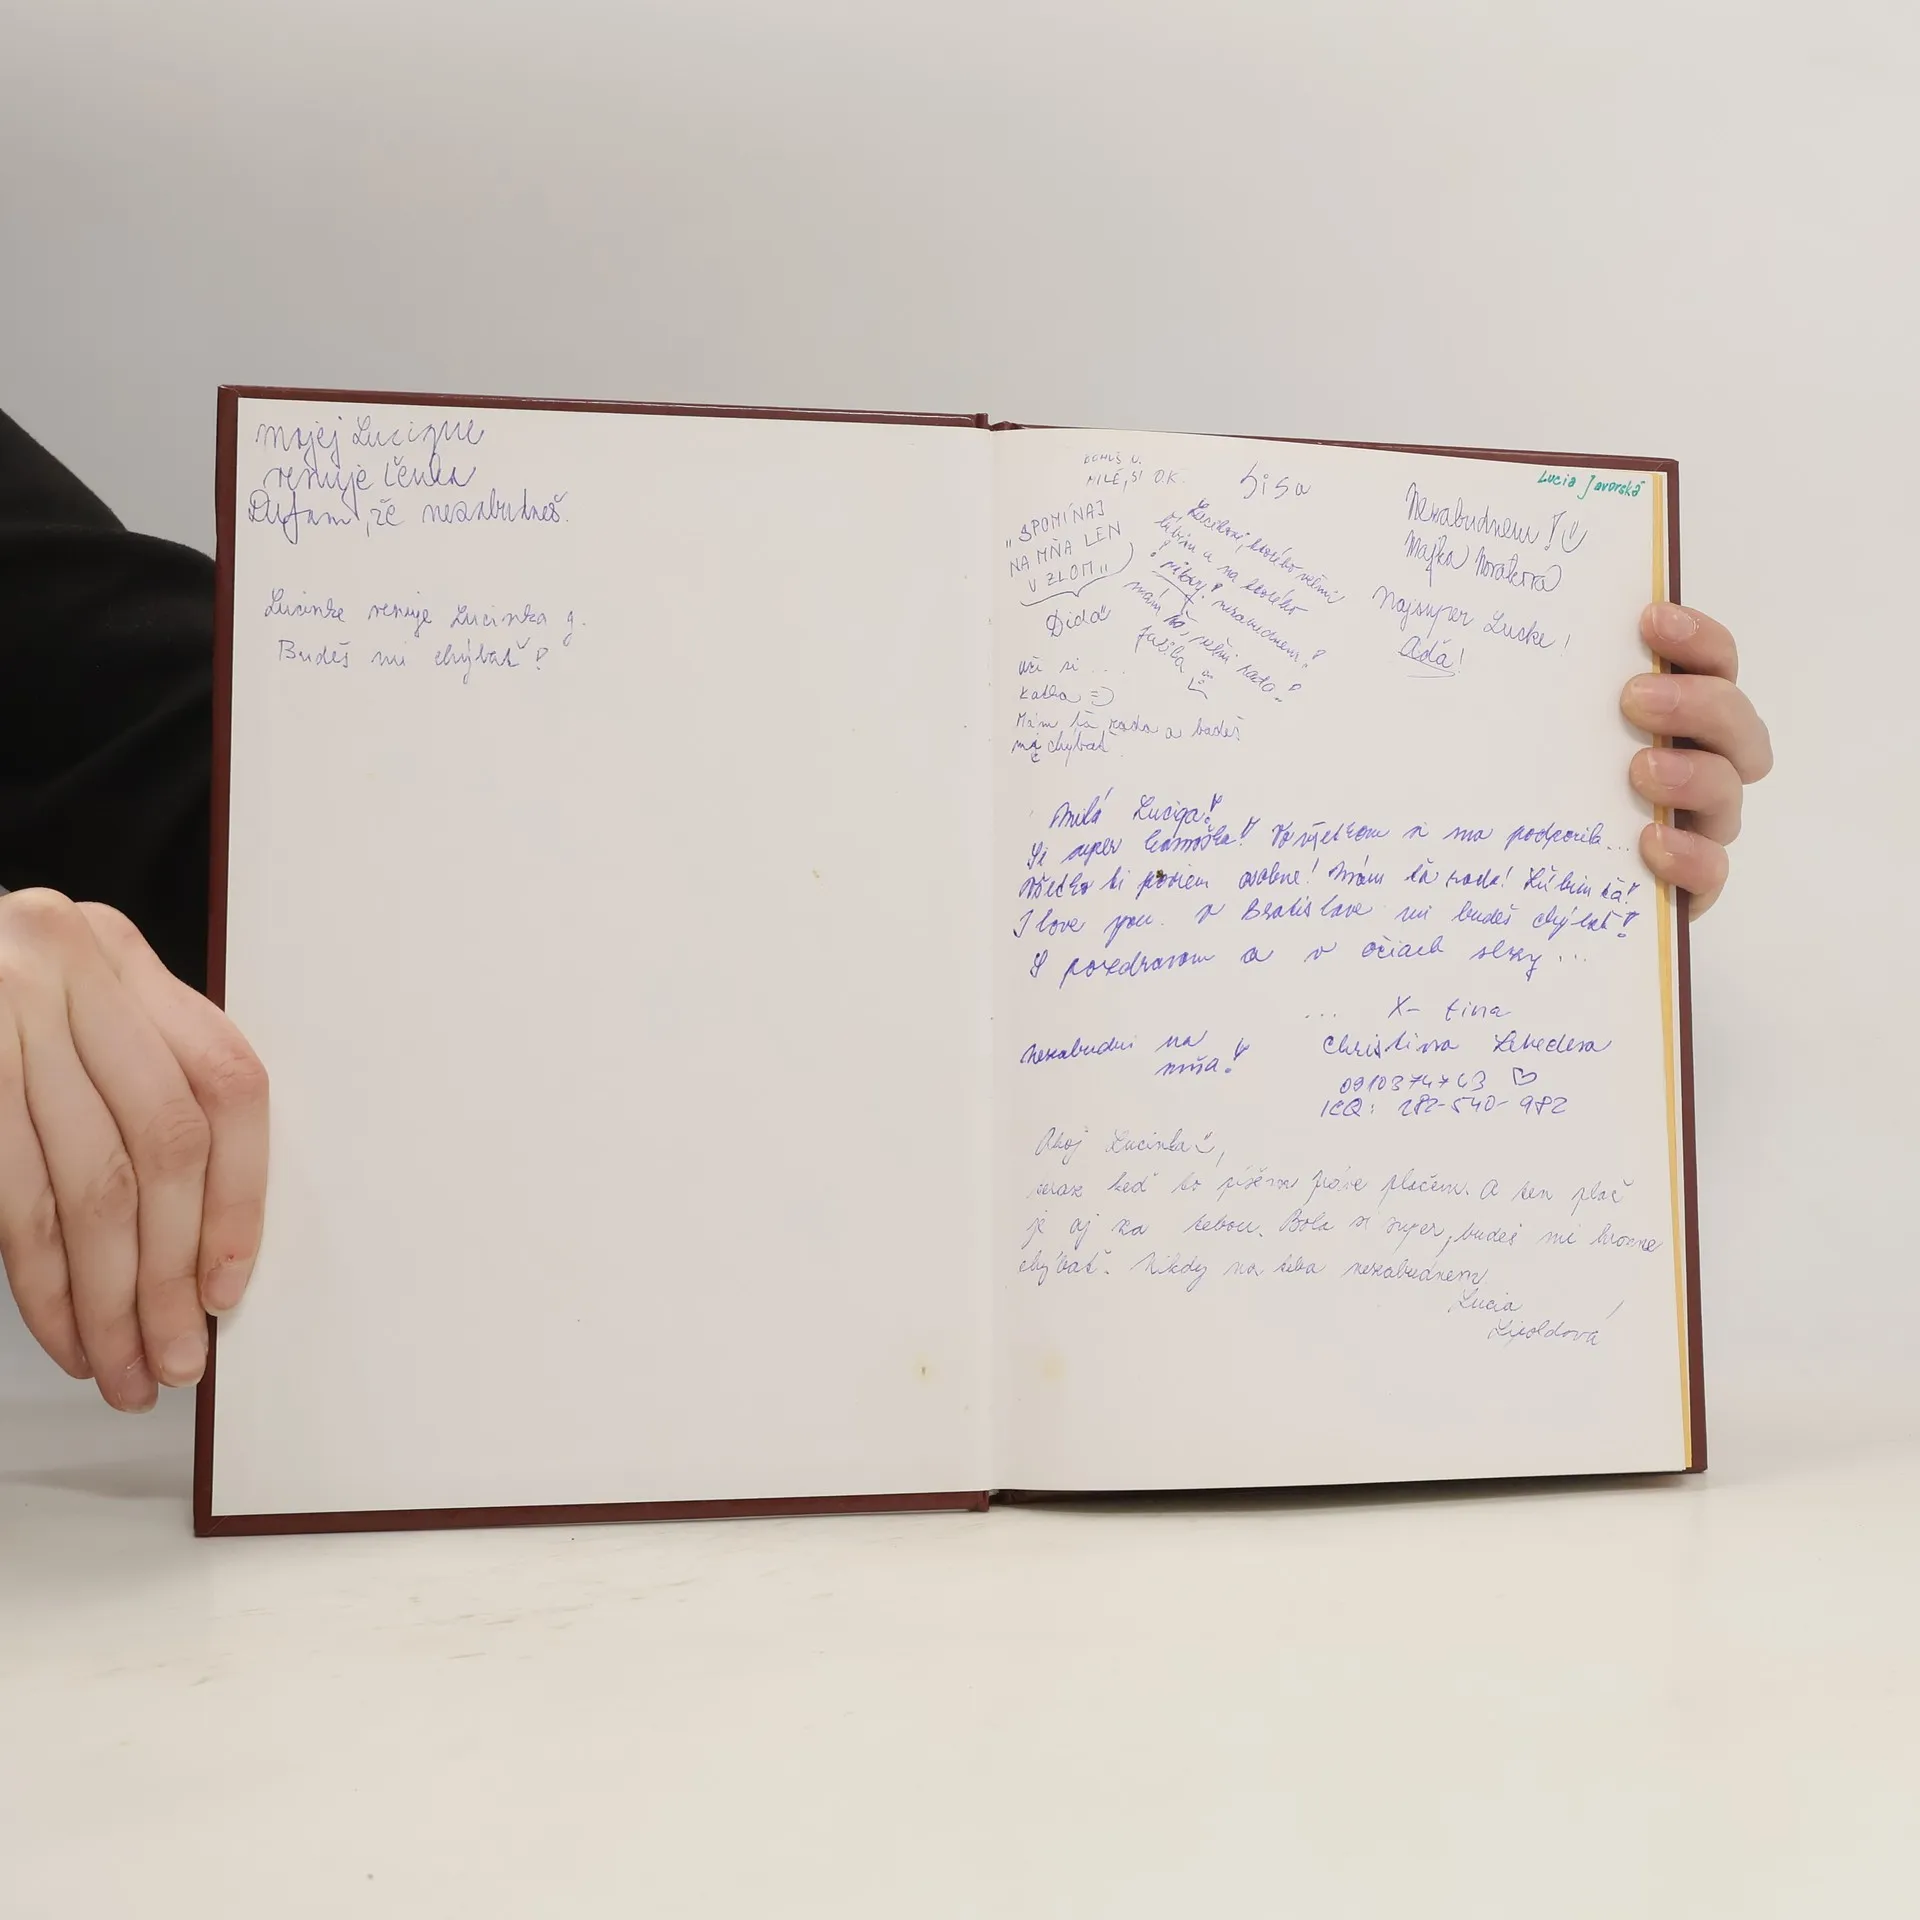 mojej Lucigne
venuje Lenka
Dúfam, že nezabudneš.
Lucinke venuje Lucinka g.
Budeš mi chýbať!
MILÉ, SI O.K.
Sisa
Lucia Javorská
"SPOMÍNAJ
NA MŇA LEN
V ZLOM"
Dida
Nezabudnem!
Majka Nováková
Najsuper Lucke!
Aďa!
ľúbim a na ktorého
nikdy! nezabudnem!
mám ťa veľmi rada!
Katka =)
Mám ťa rada a budeš
mi chýbať
Milá Luciga!
Si super kamoška! Vo všetkom si ma podporila...
Všetko ti poviem osobne! Mám ťa rada! Ľúbim ťa!
I love you. V Bratislave mi budeš chýbať!
S pozdravom a v očiach slzy...
... X-tina
Nezabudni na
mňa!
Christina
0910374743
ICQ: 282-540-982
Ahoj Lucinka,
teraz keď to píšem práve plačem. A ten plač
je aj za tebou. Bola si super, budeš mi hrozne
chýbať. Nikdy na teba nezabudnem
Lucia
Lipoldová